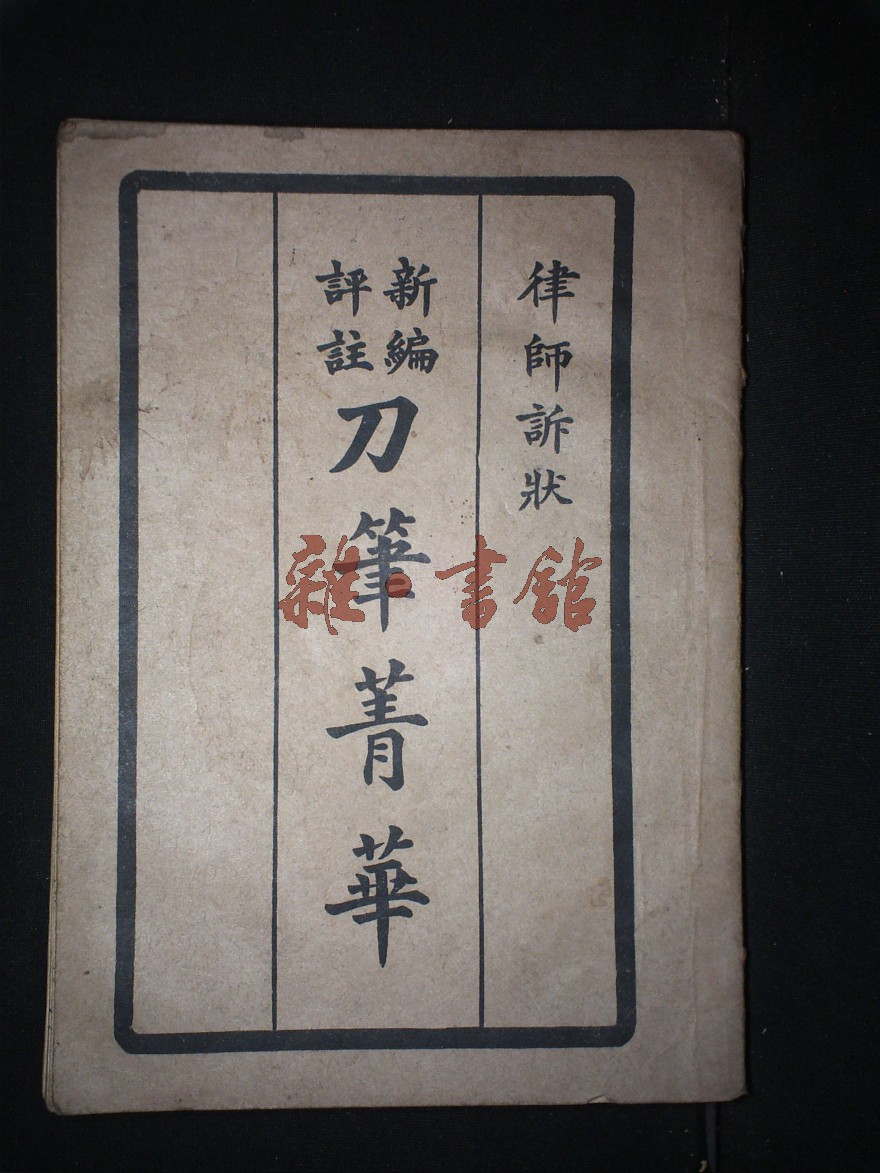 律師訴狀
新編
評註
刀筆菁華
雜·書館